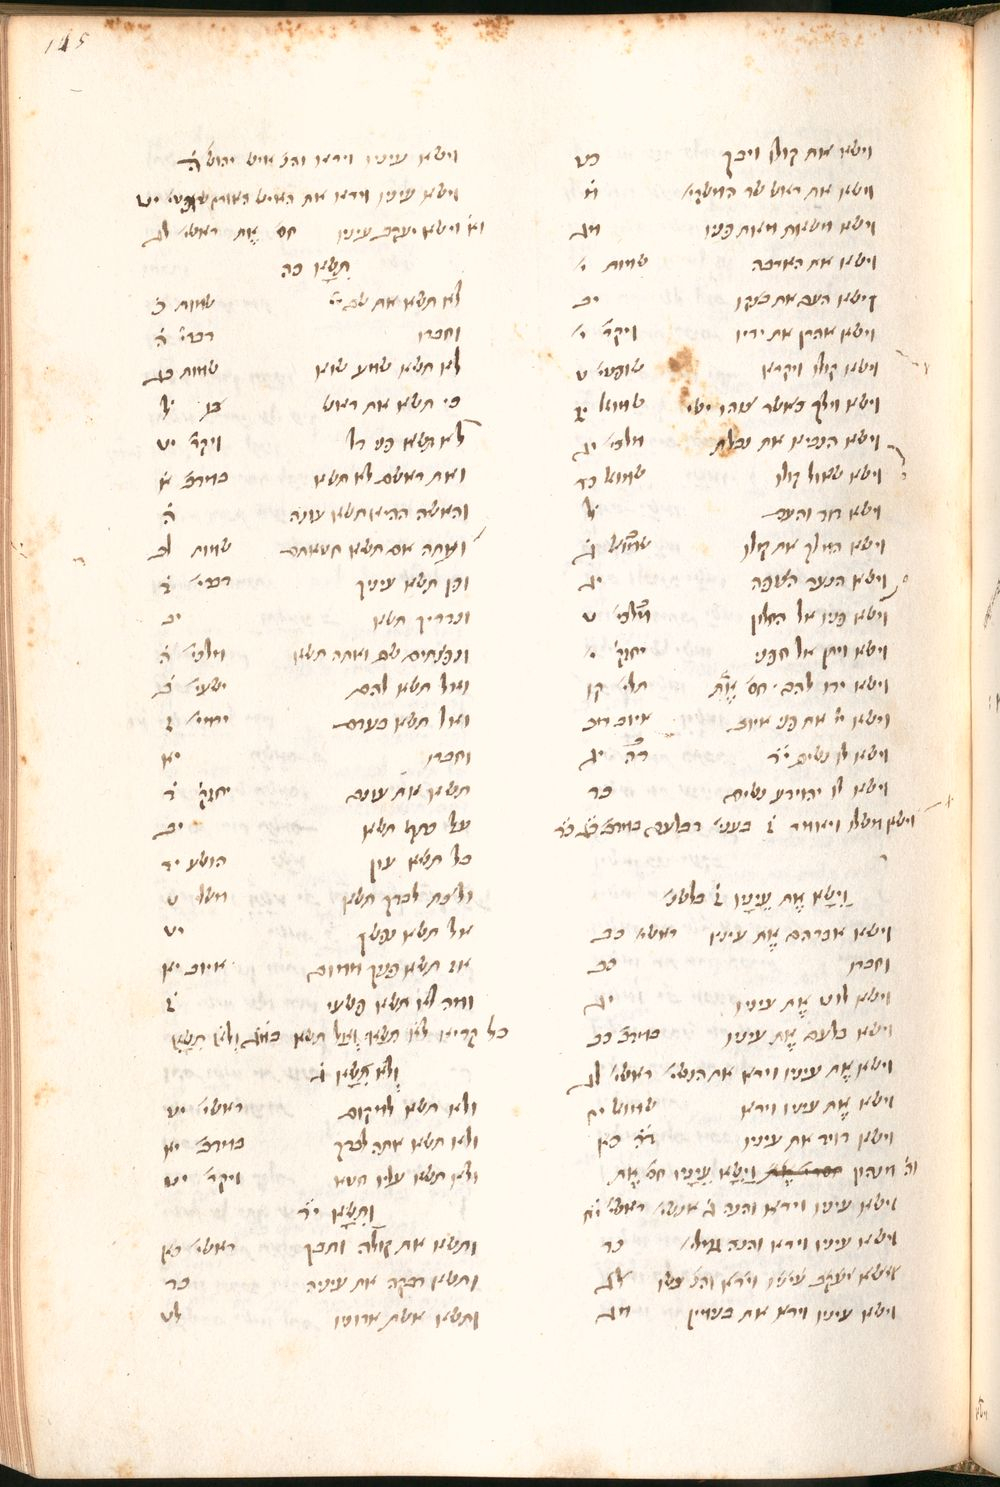 145
וישא את קולו ויבך כט
וישא את ראש שר המשקי׳ מ
וישא משאות מאת פניו מג
וישא את הארבה שמות י׳
וישא העם את בצקו יב
וישא אהרן את ידיו ויקר׳ י׳
וישא קולו ויקרא שופטי׳ ט
וישא וילך כאשר שמואל יז
וישא הנביא את נבלת מלכי׳ יג
וישא שאול קולו שמואל כד
וישא דוד והעם ל
וישא המלך את קולו שמואל ג
וישא הנער הצופה יג
וישא פניו אל החלון מלכי׳ ט
וישא ויתן אל חפני יחזק׳ י׳
וישא ידו להם חס׳ את תלי׳ קו
וישא יי את פני איוב איוב מב
וישא לו נשים י״ד דה יג
וישא לו יהוידע נשים כד
וישא משלו ויאמר ז בעני׳ דבלעם במדבר כג כד
וישא את עיניו ז בלשנ׳
וישא אברהם את עיניו ראשי׳ כב
וחברו כב
וישא לוט את עיניו יג
וישא בלעם את עיניו במדבר כב
וישא את עיניו וירא את הנשי׳ ראשי׳ לג
וישא את עיניו וירא שמואל יח
וישא דויד את עיניו דה כא
וה׳ מנהון וישא עיניו חס׳ את
וישא עיניו וירא והנה ג אנשי׳ ראשי׳ יח
וישא עיניו וירא והנה גמלי׳ כד
וישא יעקב עיניו וירא והנ׳ עשו לג
וישא עיניו וירא את בנימין מג
וישא עיניו וירא והנ׳ איש יהוש׳ ה
וישא עיניו וירא את האיש האורח שופטי׳ יט
וא׳ וישא יעקב עיניו חס׳ את ראשי׳ לג
תשא כה
לא תשא את שם יי׳ שמות כ
וחברו דברי׳ ה
לא תשא שמע שוא שמות כג
כי תשא את ראש ל
לא תשא פני דל ויקר׳ יט
ואת ראשם לא תשא במדבר א
והאשה ההיא תשא עונה ה
ועתה אם תשא חטאתם שמות לב
ופן תשא עיניך דברי׳ ד
ונדריך תשא יב
ובקנתים שם ואתה תשא מלכי׳ ה
ואל תשא להם ישעי׳ ב
ואל תשא בעדם ירמי׳ ז
וחברו יא
תשא את עונם יחזק׳ ד
על כתף תשא יב
כל תשא עון הושע יד
ולבת לבדך תשא משלי ט
אל תשא נפשך יט
אז תשא פניך ממום איוב יא
ומה לא תשא פשעי ז
כל קריא׳ לא תשא ואל תשא ולא תשא
ולא תשא ג
ולא תשא למקום ראשי׳ יח
ולא תשא אתה לבדך במדבר יא
ולא תשא עליו חטא ויקר׳ יט
ותשא י״ד
ותשא את קולה ותבך ראשי׳ כא
ותשא רבקה את עיניה כד
ותשא אשת אדוניו לט